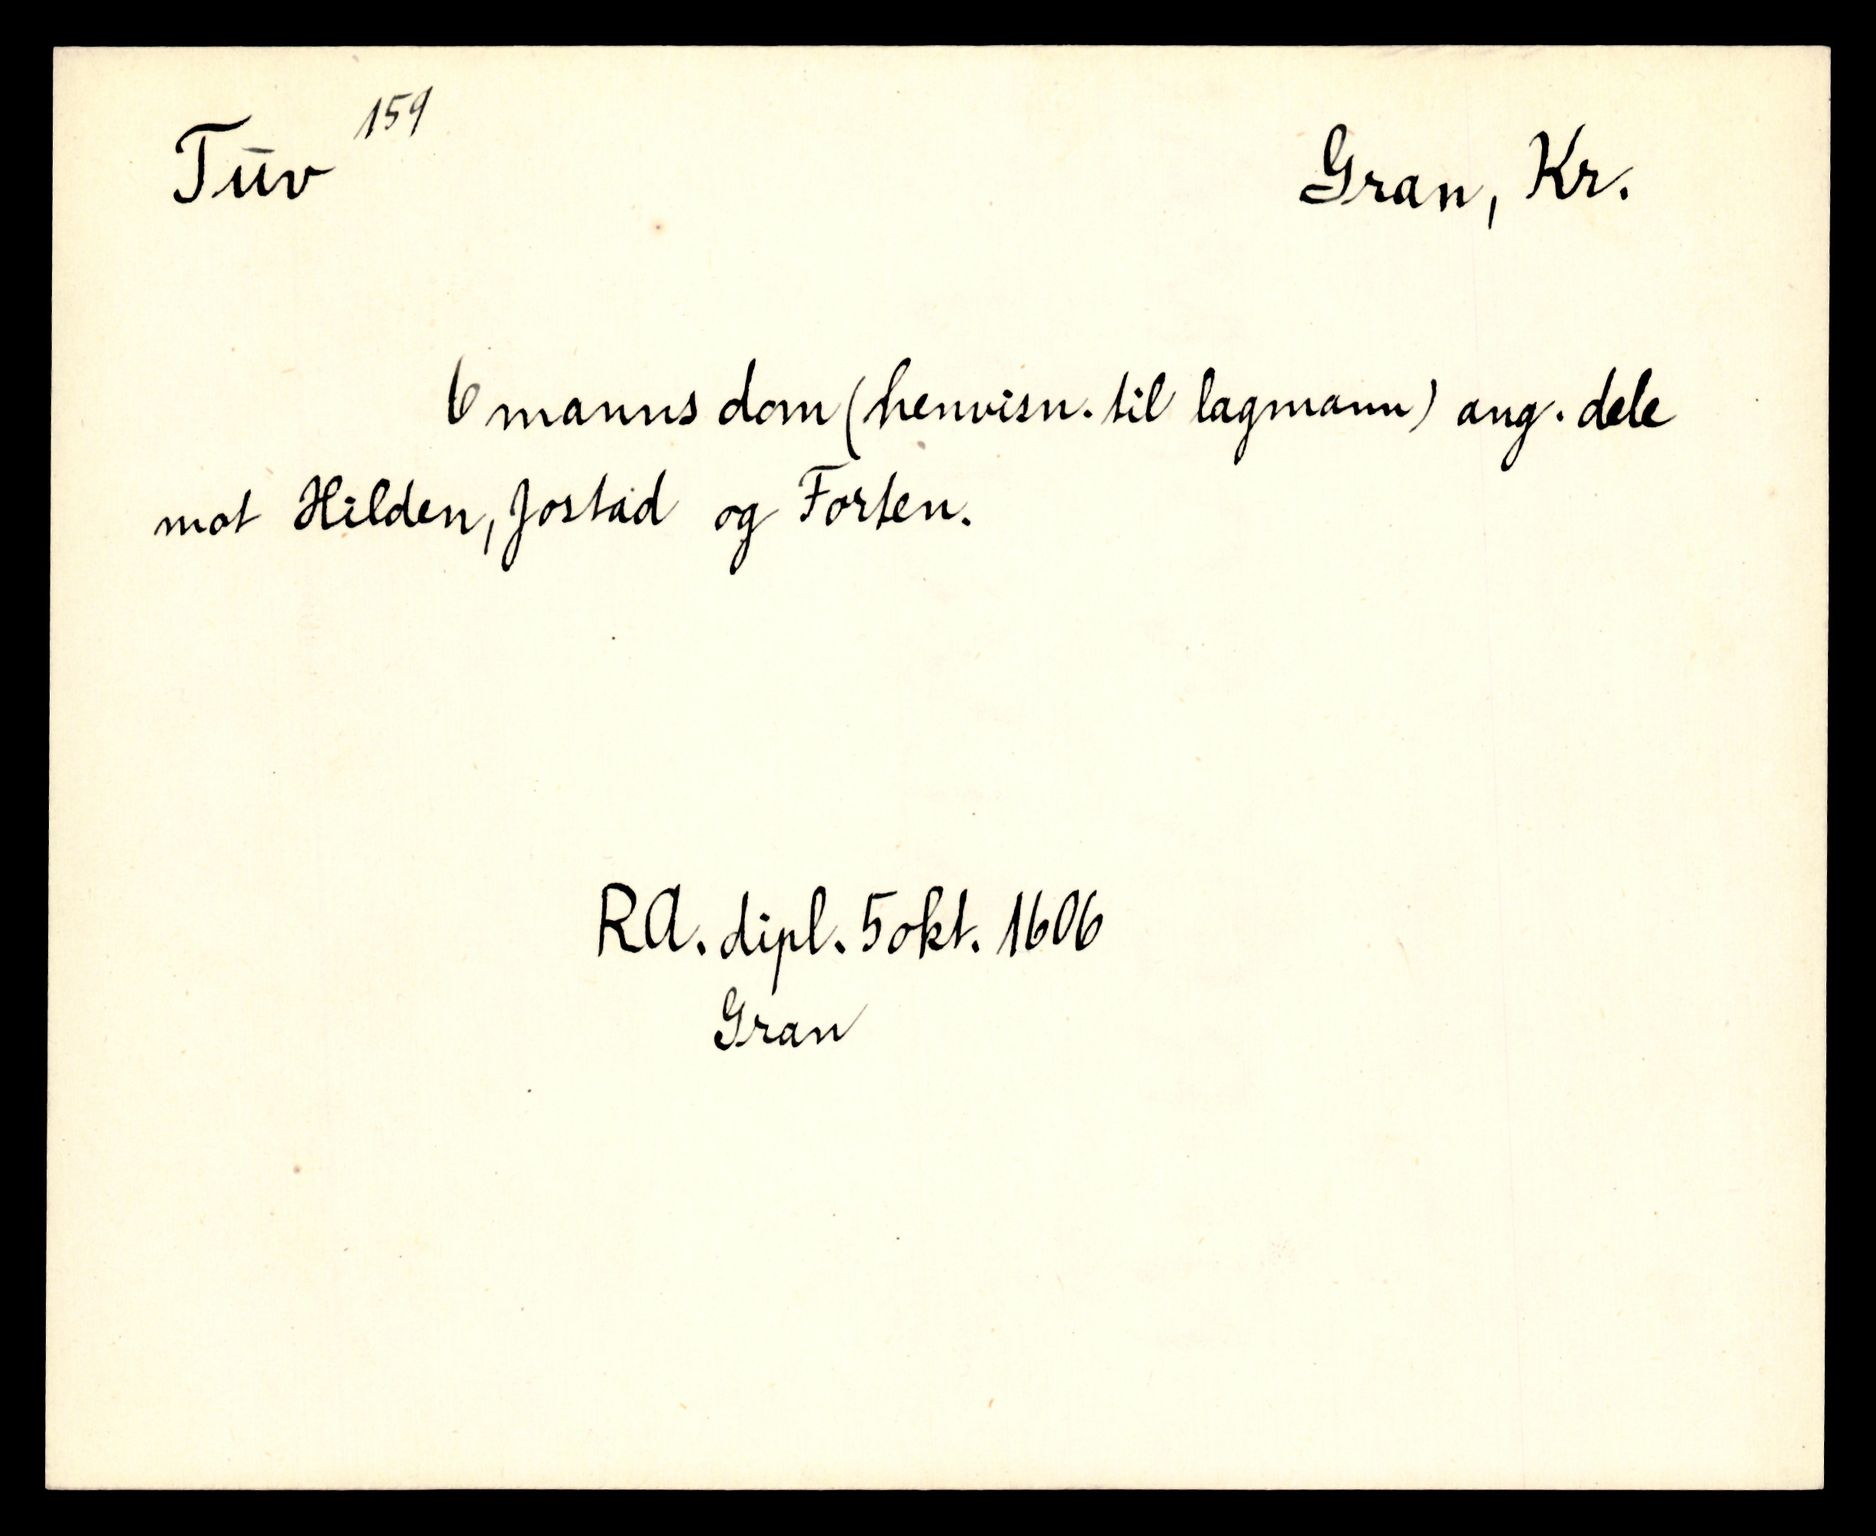 Tūv 159
Gran, Kr.
6 manns dom (henvisn. til lagmann) ang. dele
mot Hilden, Jostad og Forten.
RA. dipl. 5 okt. 1606
Gran